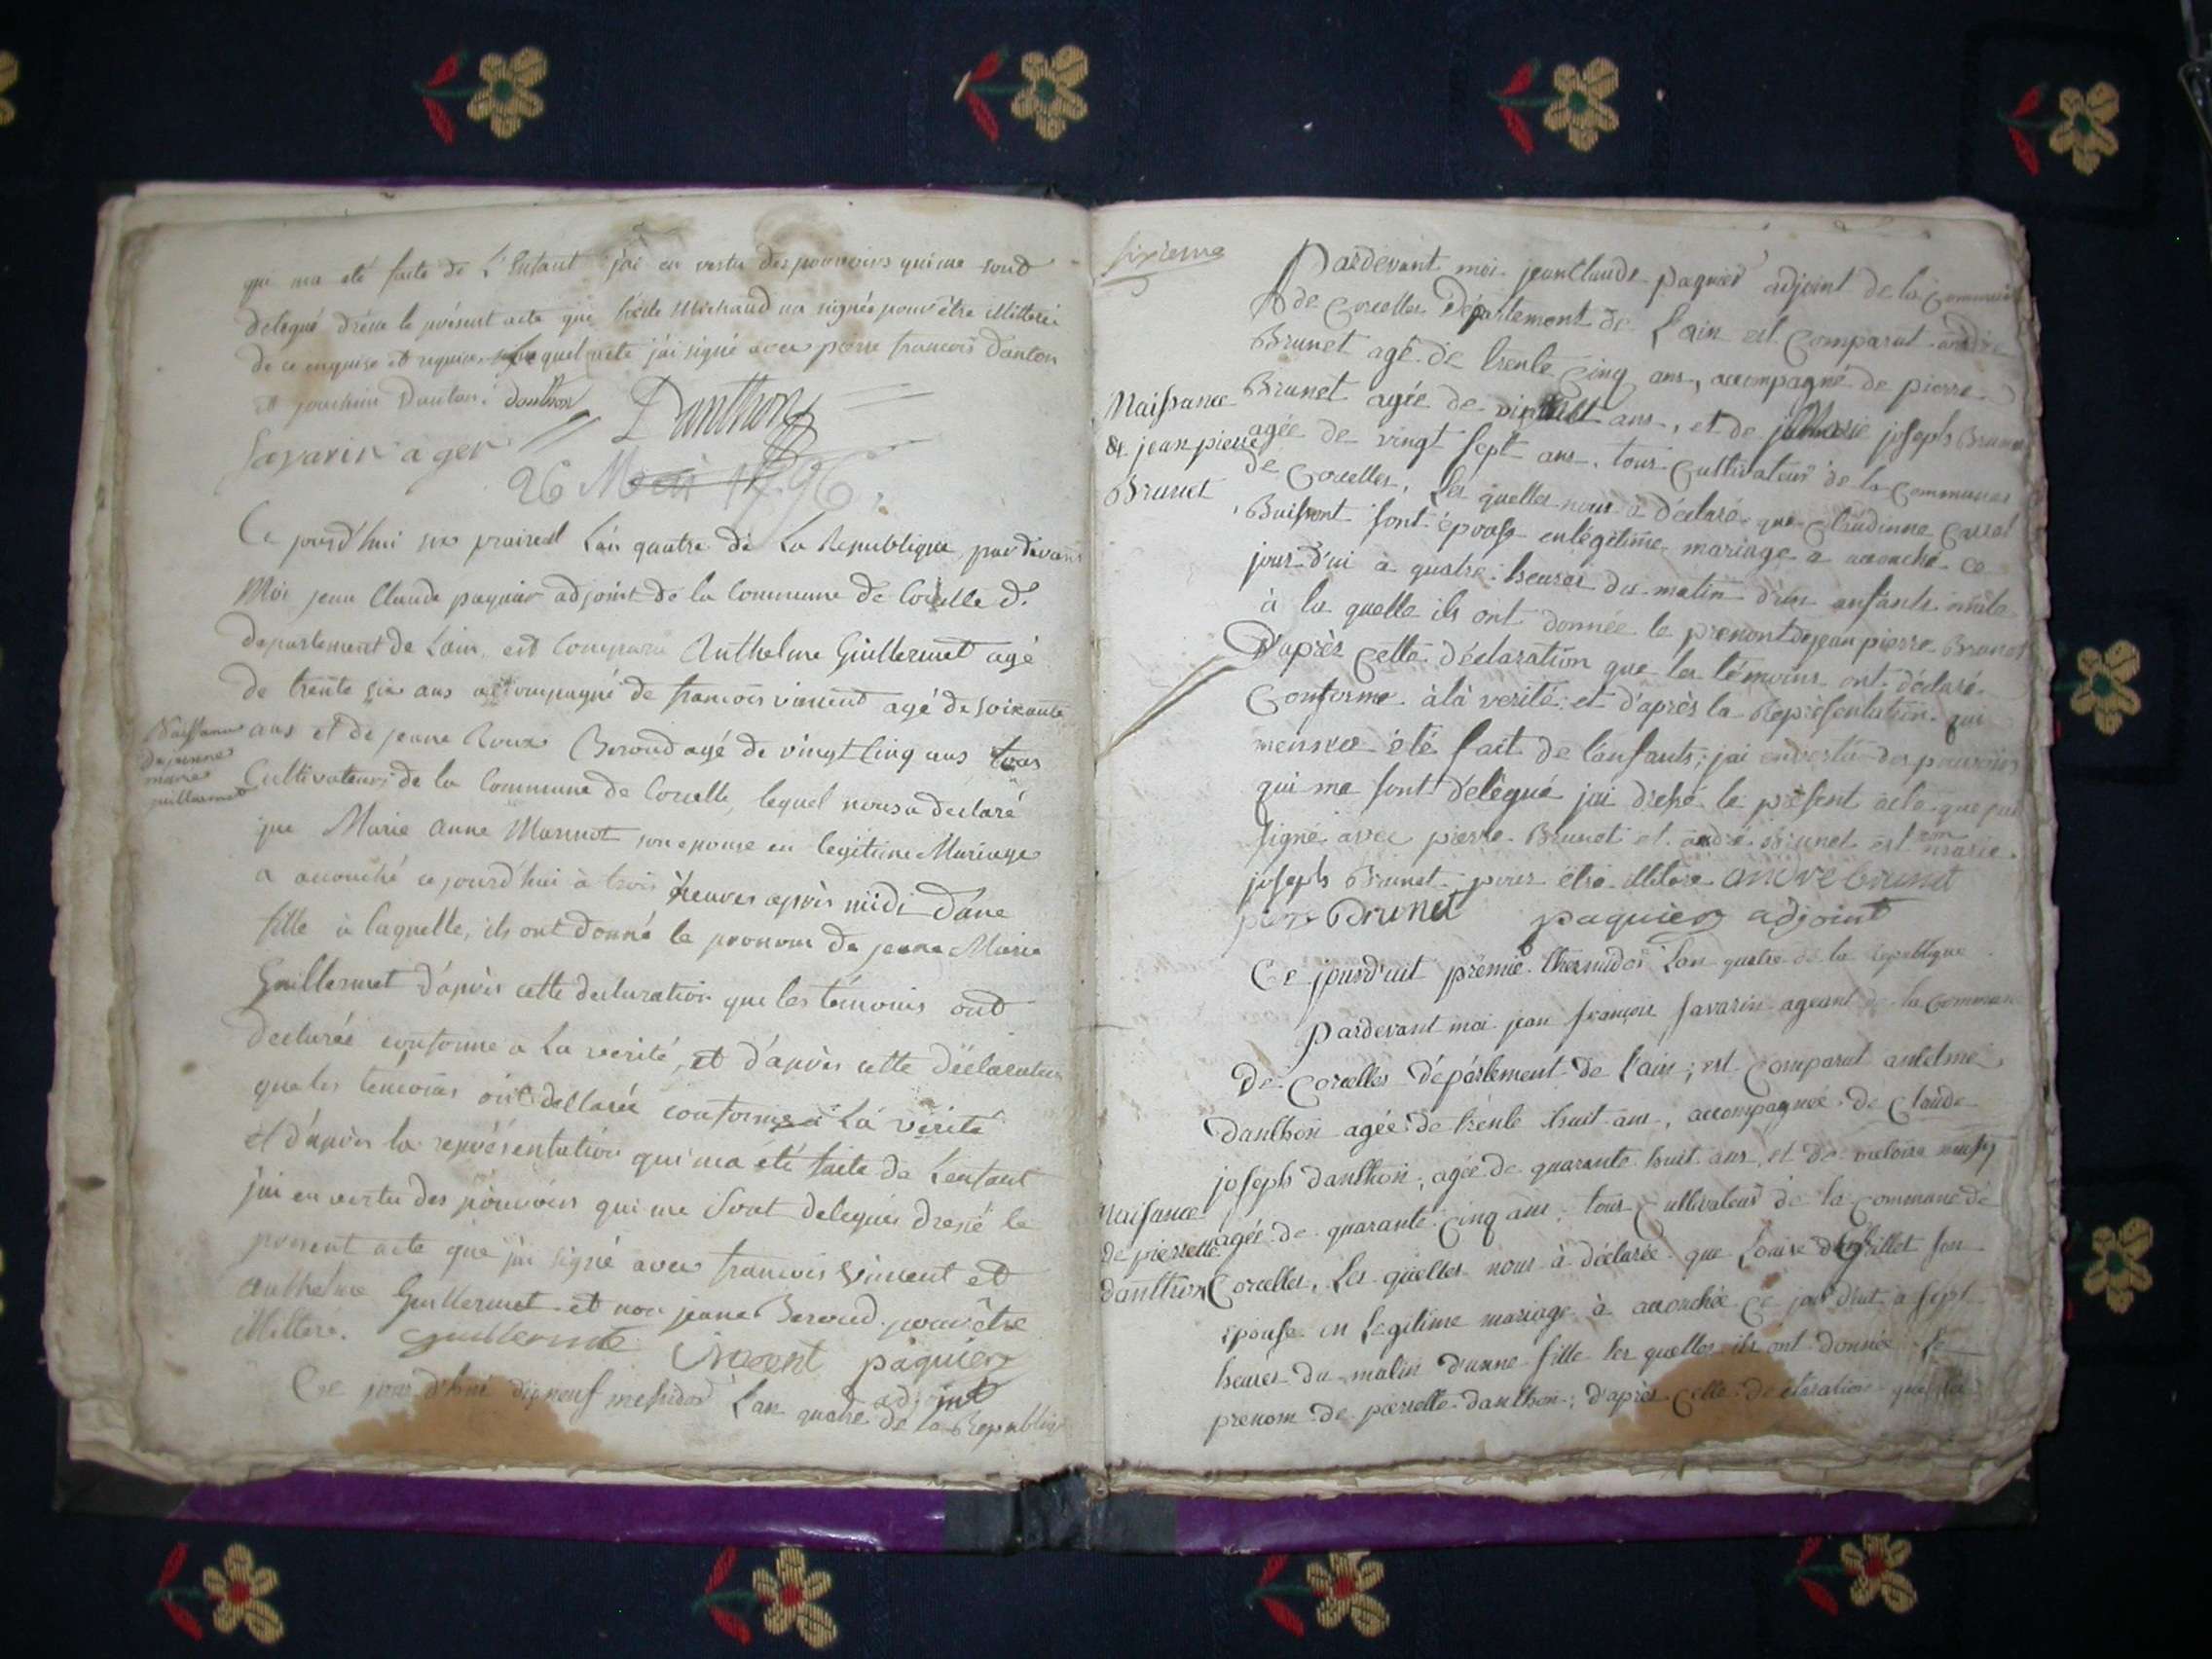 qui ma eté faite de L'Enfant j'ai en vertu des pouvoirs qui me sont
delegué dréssé le présent acte que Michaud na signée pour être illitteré
de ce enquise et requise lequel acte j'ai signé avec pierre francois Danton
et joachim Danton. danthon Danthon
Savarin agen
26 Mai 1796
Ce jourd'hui six prairial L'an quatre de La Republique, par devant
Moi jean Claude paquier adjoint de la Commune de Corcelle d.
departement de Lain, est comparu Anthelme Guillermet agé
de trente six ans accompagné de francois vincent agé de soixante
Naissance
de jeanne
marie
guillermet
ans et de jeane Roux Beroud agé de vingt Cinq ans tous
Cultivateurs de la Commune de Corcelle, lequel nous a declaré
que Marie Anne Marinot son epouse en legitime Mariage
a accouché ce jourd'hui à trois heures après midi d'une
fille à laquelle, ils ont donné le pronom de jeane Marie
Guillermet d'après cette declaration que les témoins ont
declarée conforme a La verité, et d'après cette déclaration
que les temoins ont dellarée conforme à La vérité
et d'après la représentation qui ma été faite de L'enfant
j'ai en vertu des pouvoirs qui me sont delegués dressé le
present acte que j'ai signé avec francois vincent et
anthelme Guillermet et non jeane Beroud pour être
illitteré. guillermet vincent paquier
adjoint
Ce jour d'hui dixneuf mesidor L'an quatre de la Republique
sixieme
Pardevant moi jean Claude paquier adjoint de la Commune
de Corcelles Département de L'ain est Comparut andré
Brunet agé de trente Cinq ans, accompagné de pierre
Naissance
de jean pierre
Brunet
Brunet agée de ans, et de marie joseph Brunet
agée de vingt sept ans, tous Cultivateurs de la Commune
de Corcelles, Les quelles nous a déclaré que Claudinne Carrel
Buissont sont épouse en légitime mariage a accouché ce
jour d'ui à quatre heures du matin d'un enfants mâle
à la quelle ils ont donnée le prenont de jean pierre Brunet
D'après Cette déclaration que les témoins ont déclaré
Conforme à là verité et d'après la Représentation qui
mensue été fait de l'anfants; jai en vertu des pouvoirs
qui me sont délégué jai dressé le présent acte que jai
signé avec pierre Brunet et andré Brunet est non marie
joseph Brunet pour être illitere andre brunet
pierre Brunet paquier adjoint
Ce jourd'uit prémié thermidor L'an quatre de la republique
Pardevant moi jean françois savarin ageant de la Commune
De Corcelles Département de l'ain; est Comparut antelme
Danthon agée de trente huit ans, accompagnée de Claude
joseph danthon, agée de quarante huit ans, et de
Naisance
de pierrette
danthon
agée de quarante Cinq ans, tous Cultivateurs de la Commune de
Corcelles, Les quelles nous à déclarée que Louise son
épouse en Légitime mariage à accouchée Ce jour d'uit a sept
heures du matin d'unne fille les quelles ils ont donnée le
prenom de pierrette danthon; d'après Cette déclaration que les